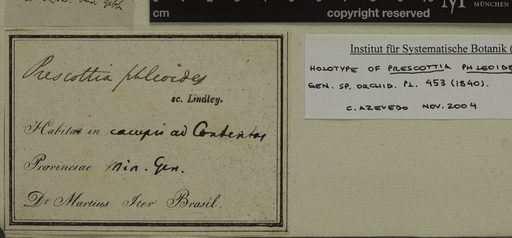 cm
copyright reserved
M
MÜNCHEN
Prescottia phleoides
sc. Lindley.
Habitat in campis ad Contentas
Provinciae Min. Gen.
Dr Martius Iter Brasil.
Institut für Systematische Botanik (
HOLOTYPE OF PRESCOTTIA PHLEOIDE
GEN. SP. ORCHID. PL. 453 (1840).
C. AZEVEDO NOV. 2004